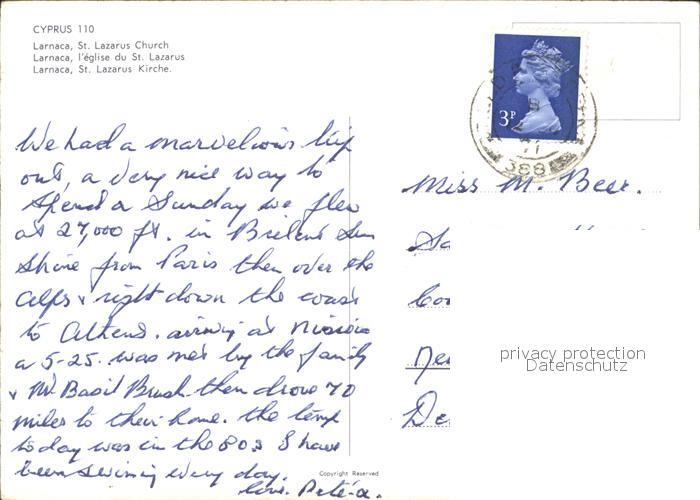 CYPRUS 110
Larnaca, St. Lazarus Church
Larnaca, l'église du St. Lazarus
Larnaca, St. Lazarus Kirche.
3P
388
We had a marvelious trip
out, a very nice way to
spend a Sunday we flew
at 27,000 ft. in Brilent Sun
shine from Paris then over the
alps & right down the coast
to Athens. arriving at Nicosia
a 5-25. was met by the family
& Mr Basil Brush then drove 70
miles to their home. the temp
today was in the 80s I have
been swiming every day.
love. Pete-a.
Copyright Reserved
Miss M. Beer.
privacy protection
Datenschutz